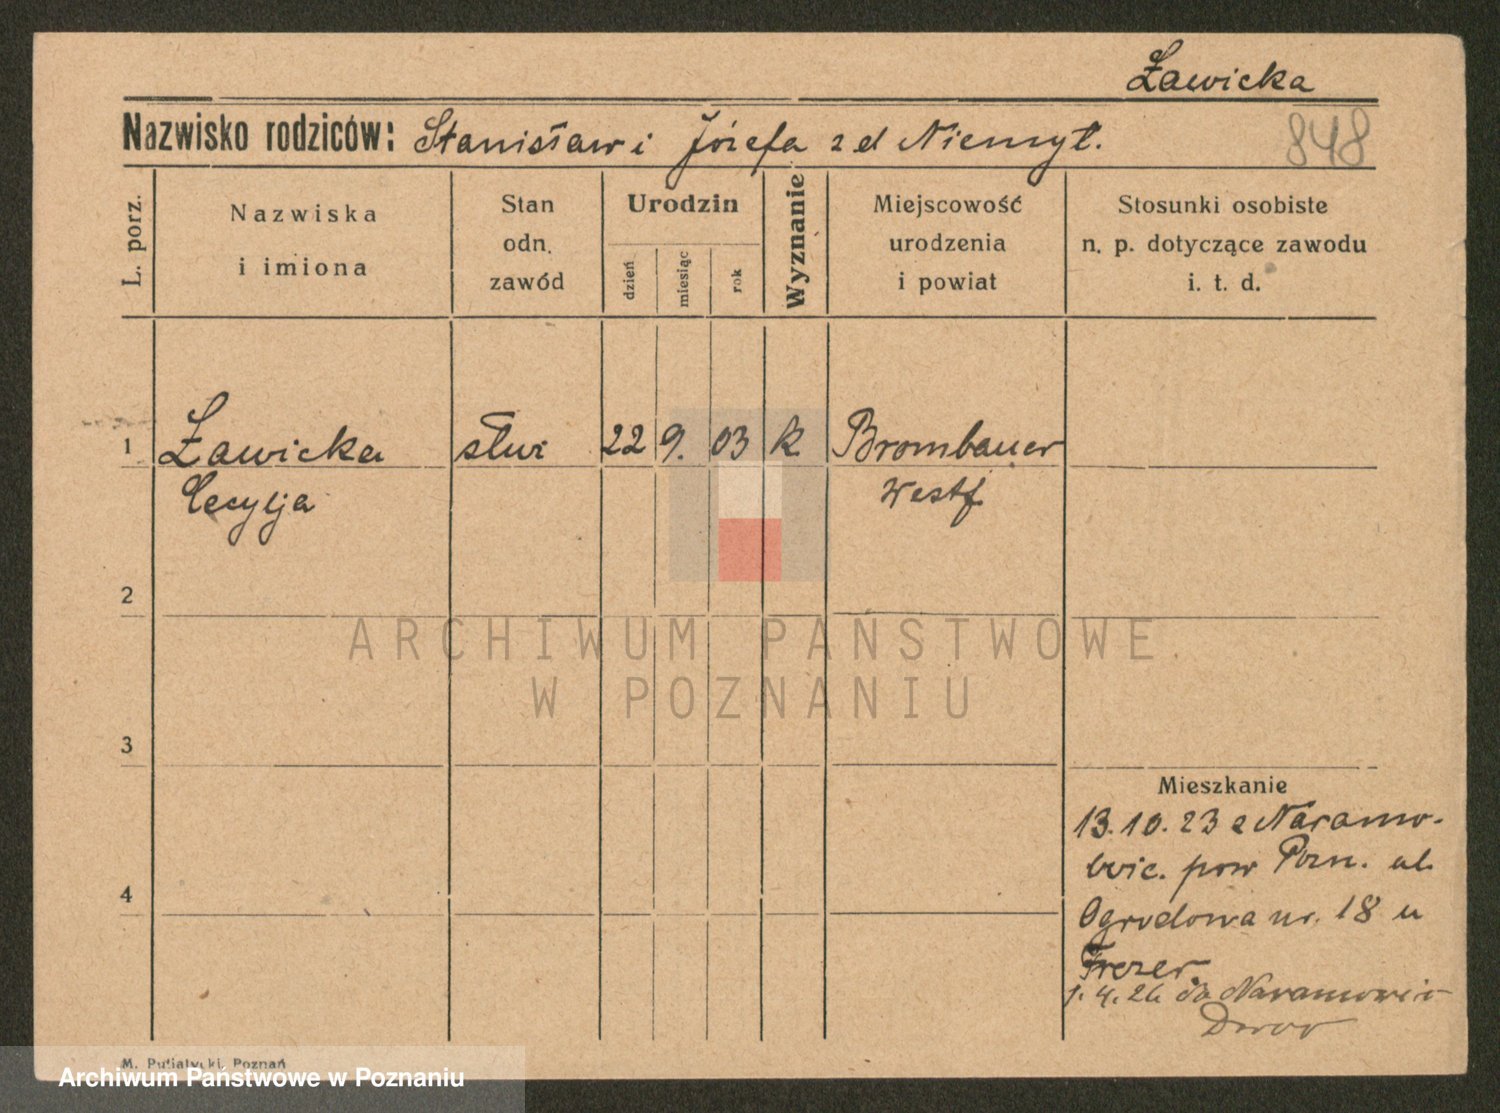 Ławicka
Nazwisko rodziców: Stanisław i Józefa z d Niemyt.
848
L. porz.
Nazwiska
i imiona
Stan
odn.
zawód
Urodzin
dzień
miesiąc
rok
Wyznanie
Miejscowość
urodzenia
i powiat
Stosunki osobiste
n. p. dotyczące zawodu
i. t. d.
1 Ławicka służ 22 9. 03 k Brombauer
Cecylja Westf
2
ARCHIWUM PAŃSTWOWE
W POZNANIU
3
Mieszkanie
13.10.23 z Naramo-
wic. pow Pozn. ul.
4
Ogrodowa nr. 18 u
Frezer.
1.4.26 do Naramowic
Dwor
M. Putiatycki, Poznań
Archiwum Państwowe w Poznaniu